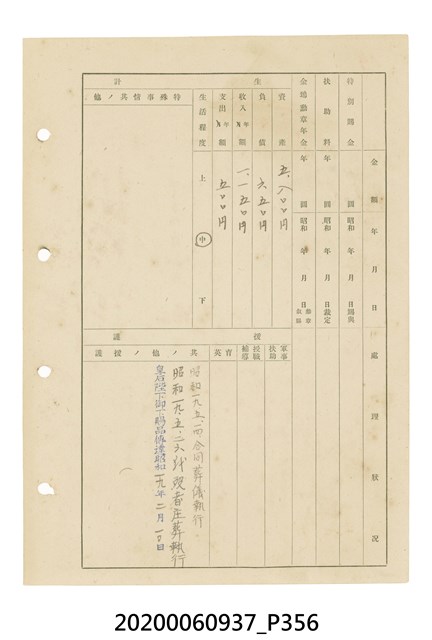 金額 年 月 日 處理狀況
特別賜金 圓 昭和 年 月 日賜與
扶助料 年 圓 昭和 年 月 日裁定
金鵄勳章年金 年 圓 昭和 年 月 日
生計
資產 五、八〇〇円
負債 六五〇円
收入年額 一、一五〇円
支出年額 五〇〇円
生活程度 上 中 下
特殊事情其ノ他
援護
軍事扶助
授職輔導
育英
其ノ他ノ援護
昭和一九、五、四合同葬儀執行
昭和一九、五、二六戰歿者庄葬執行
皇后陛下御下賜品傳達昭和一九年二月一〇日
20200060937_P356